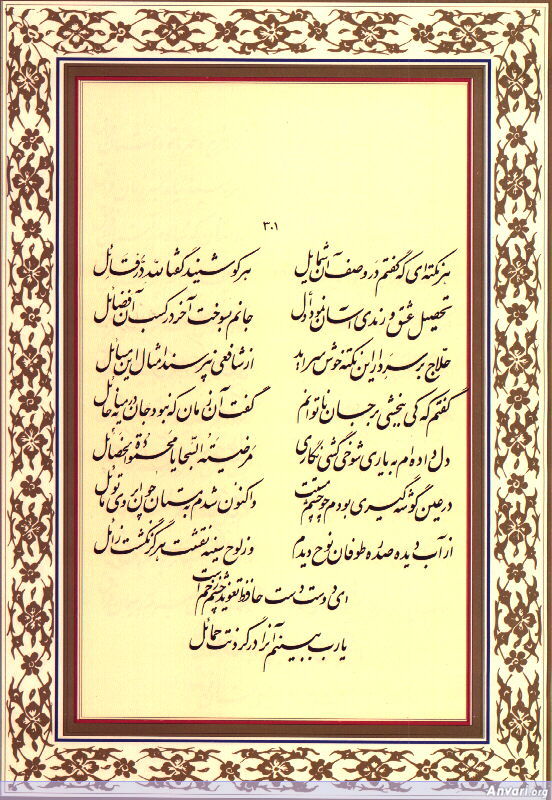 ۳۰۱
هر نکته‌ای که گفتم در وصف آن شمایل هر کو شنید گفتا لله در قائل
تحصیل عشق و رندی آسان نمود اول جانم بسوخت آخر در کسب آن فضائل
حلاج بر سر دار این نکته خوش سراید از شافعی نپرسند امثال این مسائل
گفتم که کی ببخشی بر جان ناتوانم گفت آن زمان که نبود جان در میانه حائل
دل داده‌ام به یاری شوخی کشی نگاری مرضیة السجایا محمودة الخصائل
در عین گوشه‌گیری بودم چو چشم مستت واکنون شدم بمستان چون ابروی تو مائل
از آب دیده صد ره طوفان نوح دیدم وز لوح سینه نقشت هرگز نگشت زائل
ای دوست دست حافظ تعویذ چشم زخم است
یارب ببینم آنرا در گردنت حمائل
Anvari.org